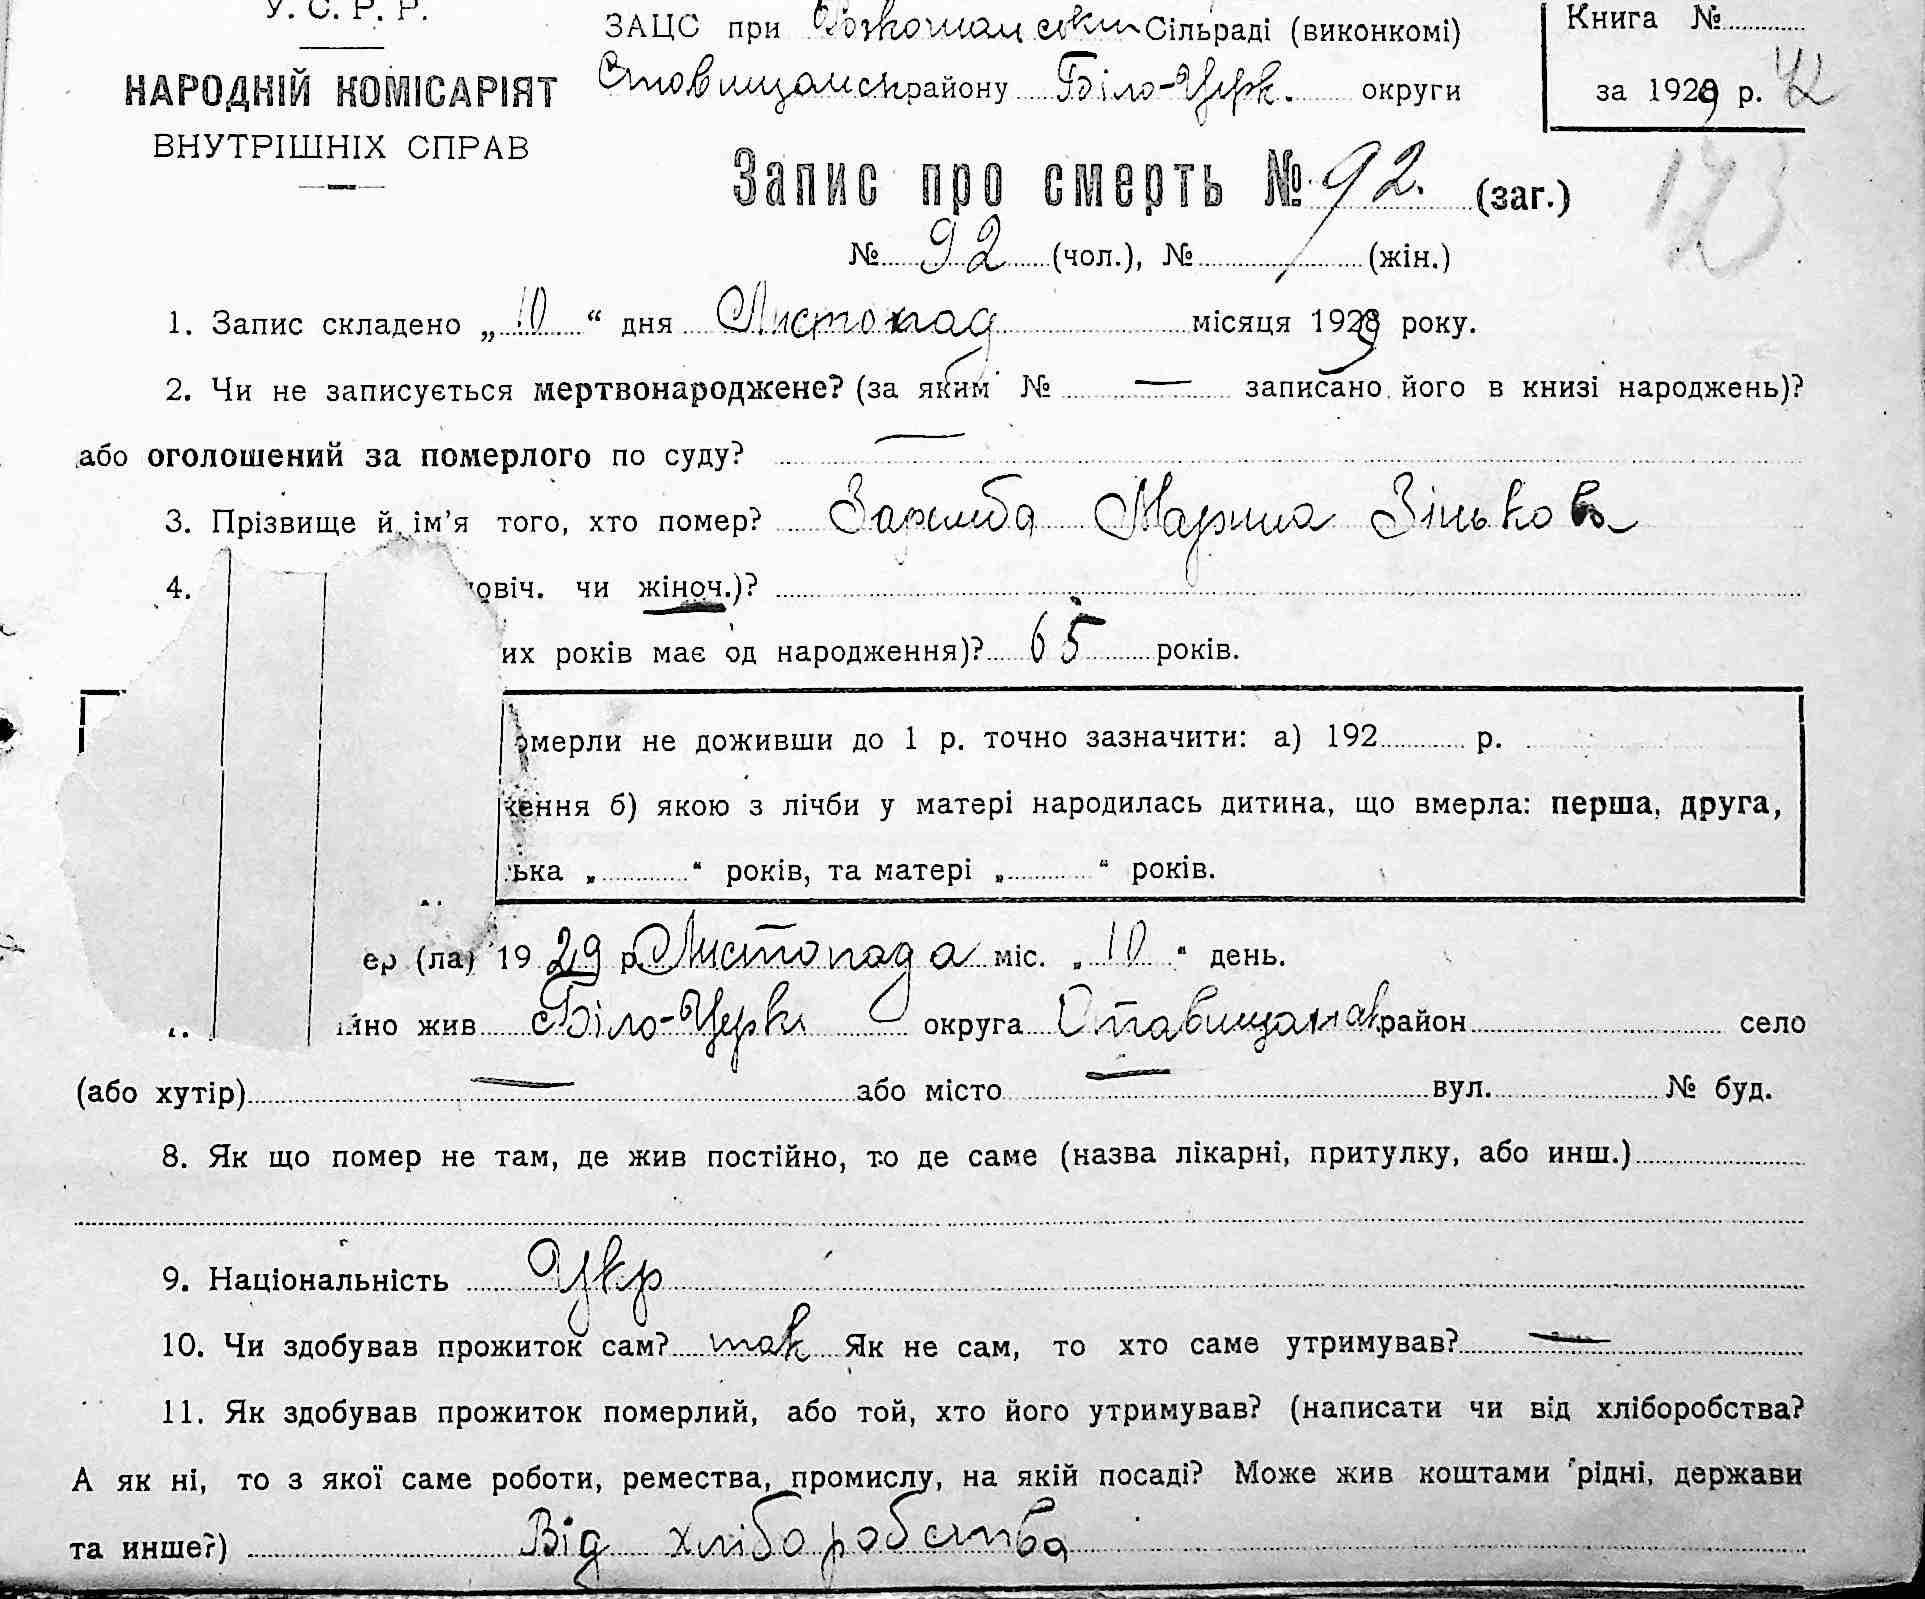 У. С. Р. Р.
НАРОДНІЙ КОМІСАРІЯТ
ВНУТРІШНІХ СПРАВ
ЗАЦС при Розкошанській Сільраді (виконкомі)
Ставищанськ району Біло-Церк. округи
Книга №
за 1929 р. 42
Запис про смерть № 92. (заг.)
№ 92 (чол.), № (жін.)
1. Запис складено „10“ дня Листопад місяця 1929 року.
2. Чи не записується мертвонароджене? (за яким № — записано його в книзі народжень)?
або оголошений за померлого по суду? —
3. Прізвище й ім'я того, хто помер? Заремба Марина Зінькова
4. овіч. чи жіноч.)?
их років має од народження)? 65 років.
омерли не доживши до 1 р. точно зазначити: а) 192 р.
ження б) якою з лічби у матері народилась дитина, що вмерла: перша, друга,
ька „ “ років, та матері „ “ років.
ер (ла) 1929 р. Листопада міс. „10“ день.
ійно жив Біло-Церк округа Ставищанськ район село
(або хутір) — або місто — вул. № буд.
8. Як що помер не там, де жив постійно, то де саме (назва лікарні, притулку, або инш.)
9. Національність Укр
10. Чи здобував прожиток сам? так Як не сам, то хто саме утримував? —
11. Як здобував прожиток померлий, або той, хто його утримував? (написати чи від хліборобства?
А як ні, то з якої саме роботи, ремества, промислу, на якій посаді? Може жив коштами рідні, держави
та инше?) Від хліборобства